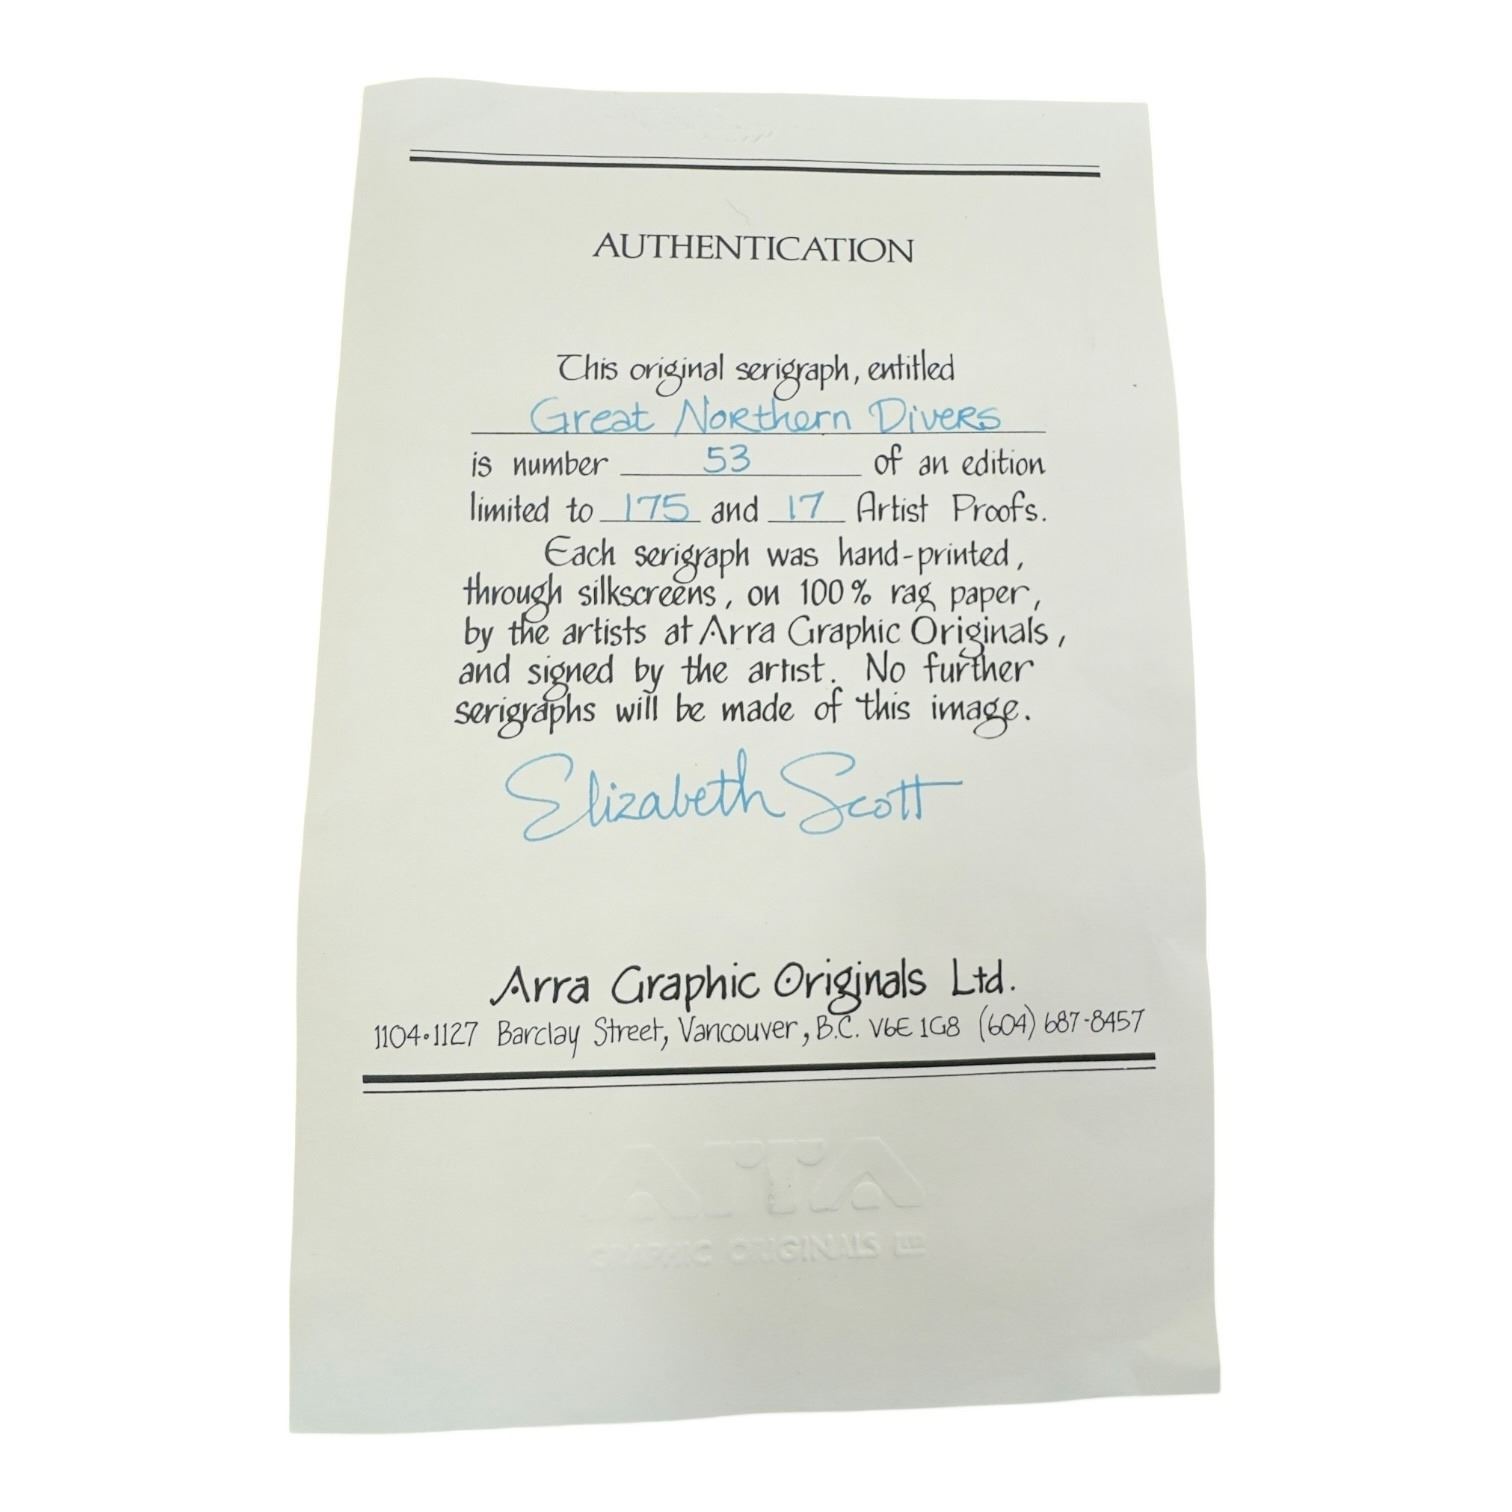 AUTHENTICATION
This original serigraph, entitled
Great Northern Divers
is number 53 of an edition
limited to 175 and 17 Artist Proofs.
Each serigraph was hand-printed,
through silkscreens, on 100% rag paper,
by the artists at Arra Graphic Originals,
and signed by the artist. No further
serigraphs will be made of this image.
Elizabeth Scott
Arra Graphic Originals Ltd.
1104·1127 Barclay Street, Vancouver, B.C. V6E 1G8 (604) 687-8457
ARRA
GRAPHIC ORIGINALS LTD